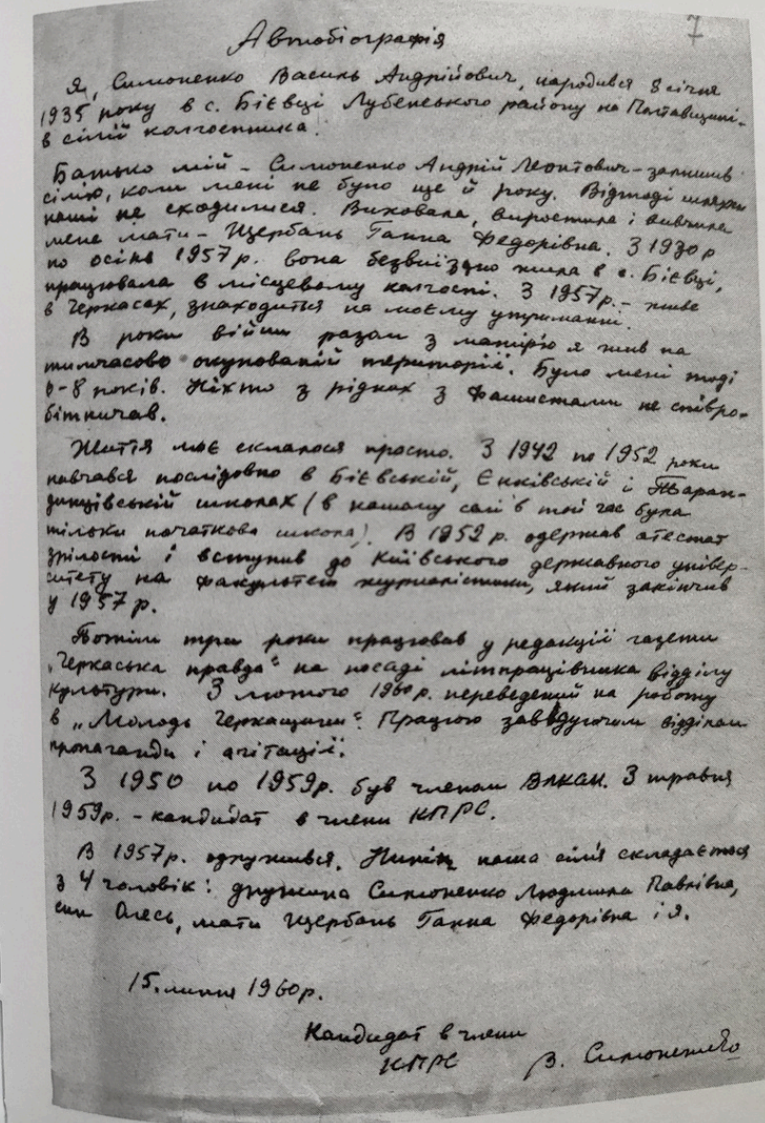 7
Автобіографія
Я, Симоненко Василь Андрійович, народився 8 січня
1935 року в с. Бієвці Лубенського району на Полтавщині -
в сімїі колгоспника.
Батько мій - Симоненко Андрій Леонтович - залишив
сімю, коли мені не було ще й року. Відтоді шляхи
наші не сходилися. Виховала, виростила і вивчила
мене мати - Щербань Ганна Федорівна. З 1930 р
по осінь 1957 р. вона безвиїздно жила в с. Бієвці,
працювала в місцевому колгоспі. З 1957 р. - живе
в Черкасах, знаходиться на моєму утриманні.
В роки війни разом з матір'ю я жив на
тимчасово окупованій території. Було мені тоді
6-8 років. Ніхто з рідних з фашистами не співро-
бітничав.
Життя моє склалося просто. З 1942 по 1952 роки
навчався послідовно в Бієвській, Єнківській і Таран-
динцівській школах (в нашому селі в той час була
тільки початкова школа). В 1952 р. одержав атестат
зрілості і вступив до Київського державного універ-
ситету на факультет журналістики, який закінчив
у 1957 р.
Потім три роки працював у редакції газети
„Черкаська правда" на посаді літпрацівника відділу
культури. З лютого 1960 р. переведений на роботу
в „Молодь Черкащини". Працюю завідуючим відділом
пропаганди і агітації.
З 1950 по 1959 р. був членом ВЛКСМ. З травня
1959 р. - кандидат в члени КПРС.
В 1957 р. одружився. Нині наша сім'я складається
з 4 чоловік: дружина Симоненко Людмила Павлівна,
син Олесь, мати Щербань Ганна Федорівна і я.
15. липня 1960 р.
Кандидат в члени
КПРС В. Симоненко